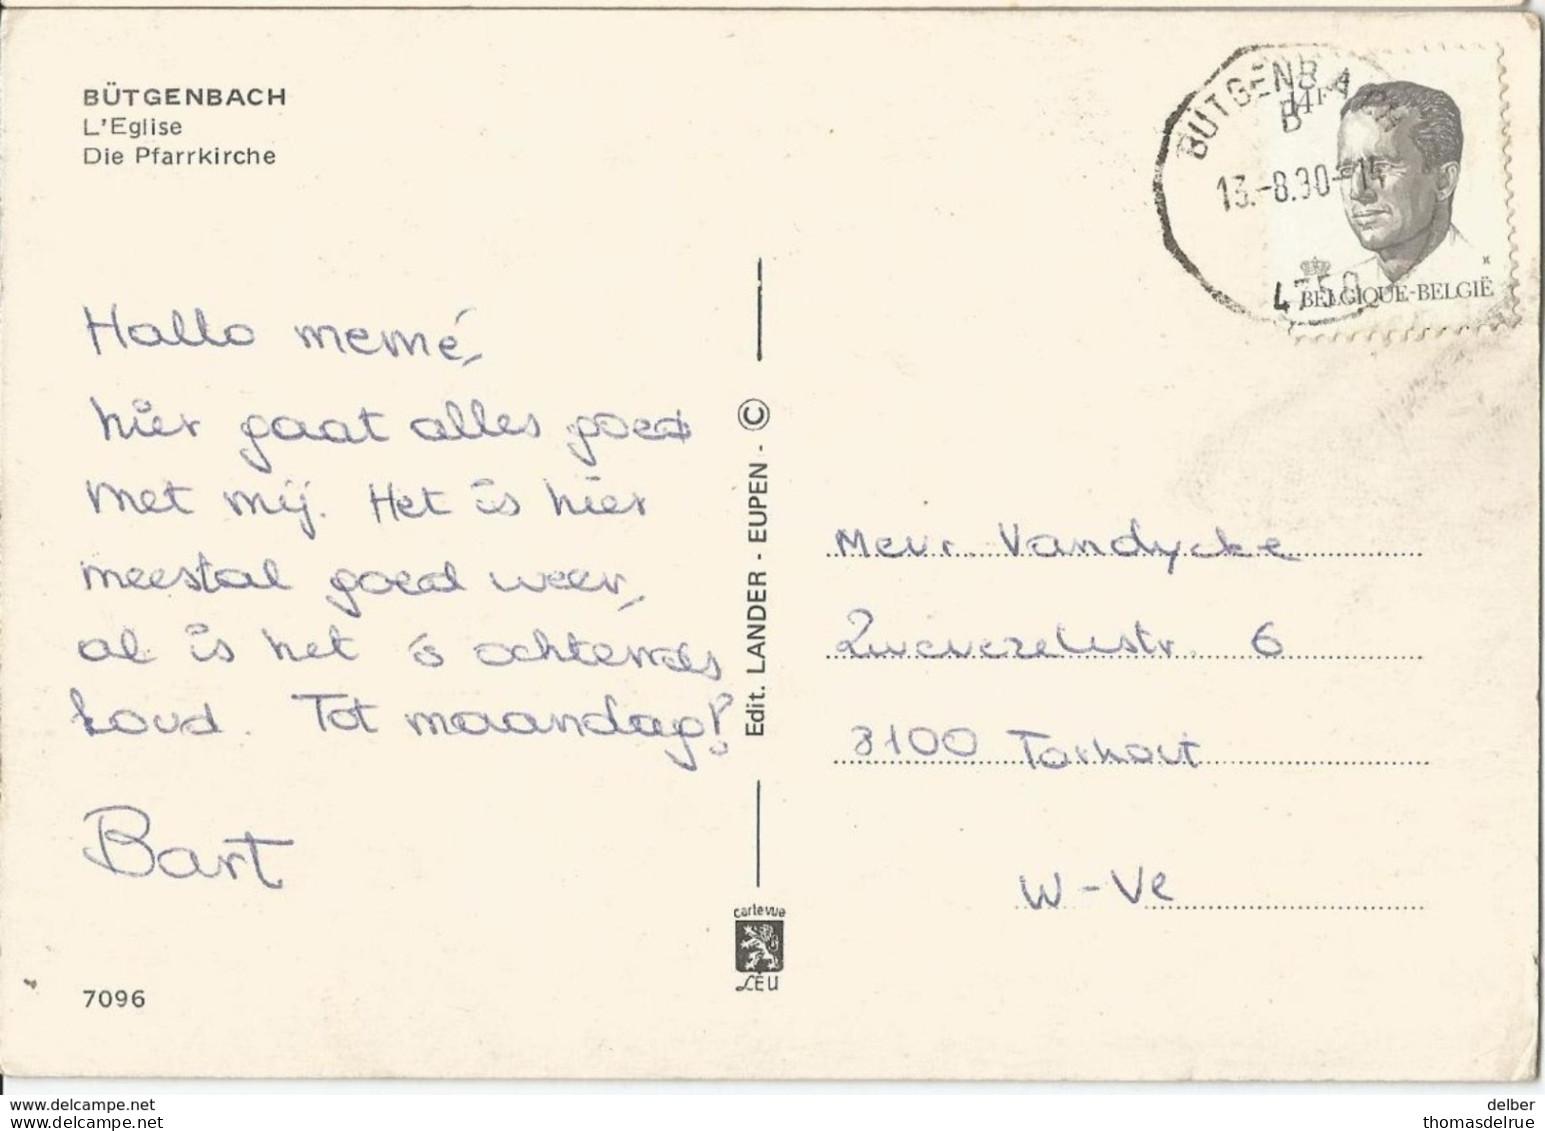 BÜTGENBACH
L'Eglise
Die Pfarrkirche
BÜTGENBACH
B
13.-8.90-14
4750
14F
BELGIQUE-BELGIË
Hallo memé,
hier gaat alles goed
met mij. Het is hier
meestal goed weer,
al is het 's ochtends
koud. Tot maandag!
Bart
7096
Edit. LANDER - EUPEN - ©
cartevue
LEU
Mevr. Vandycke
Zwevezelestr. 6
8100 Torhout
W-Vl
delcampe.net
delber
thomasdelrue